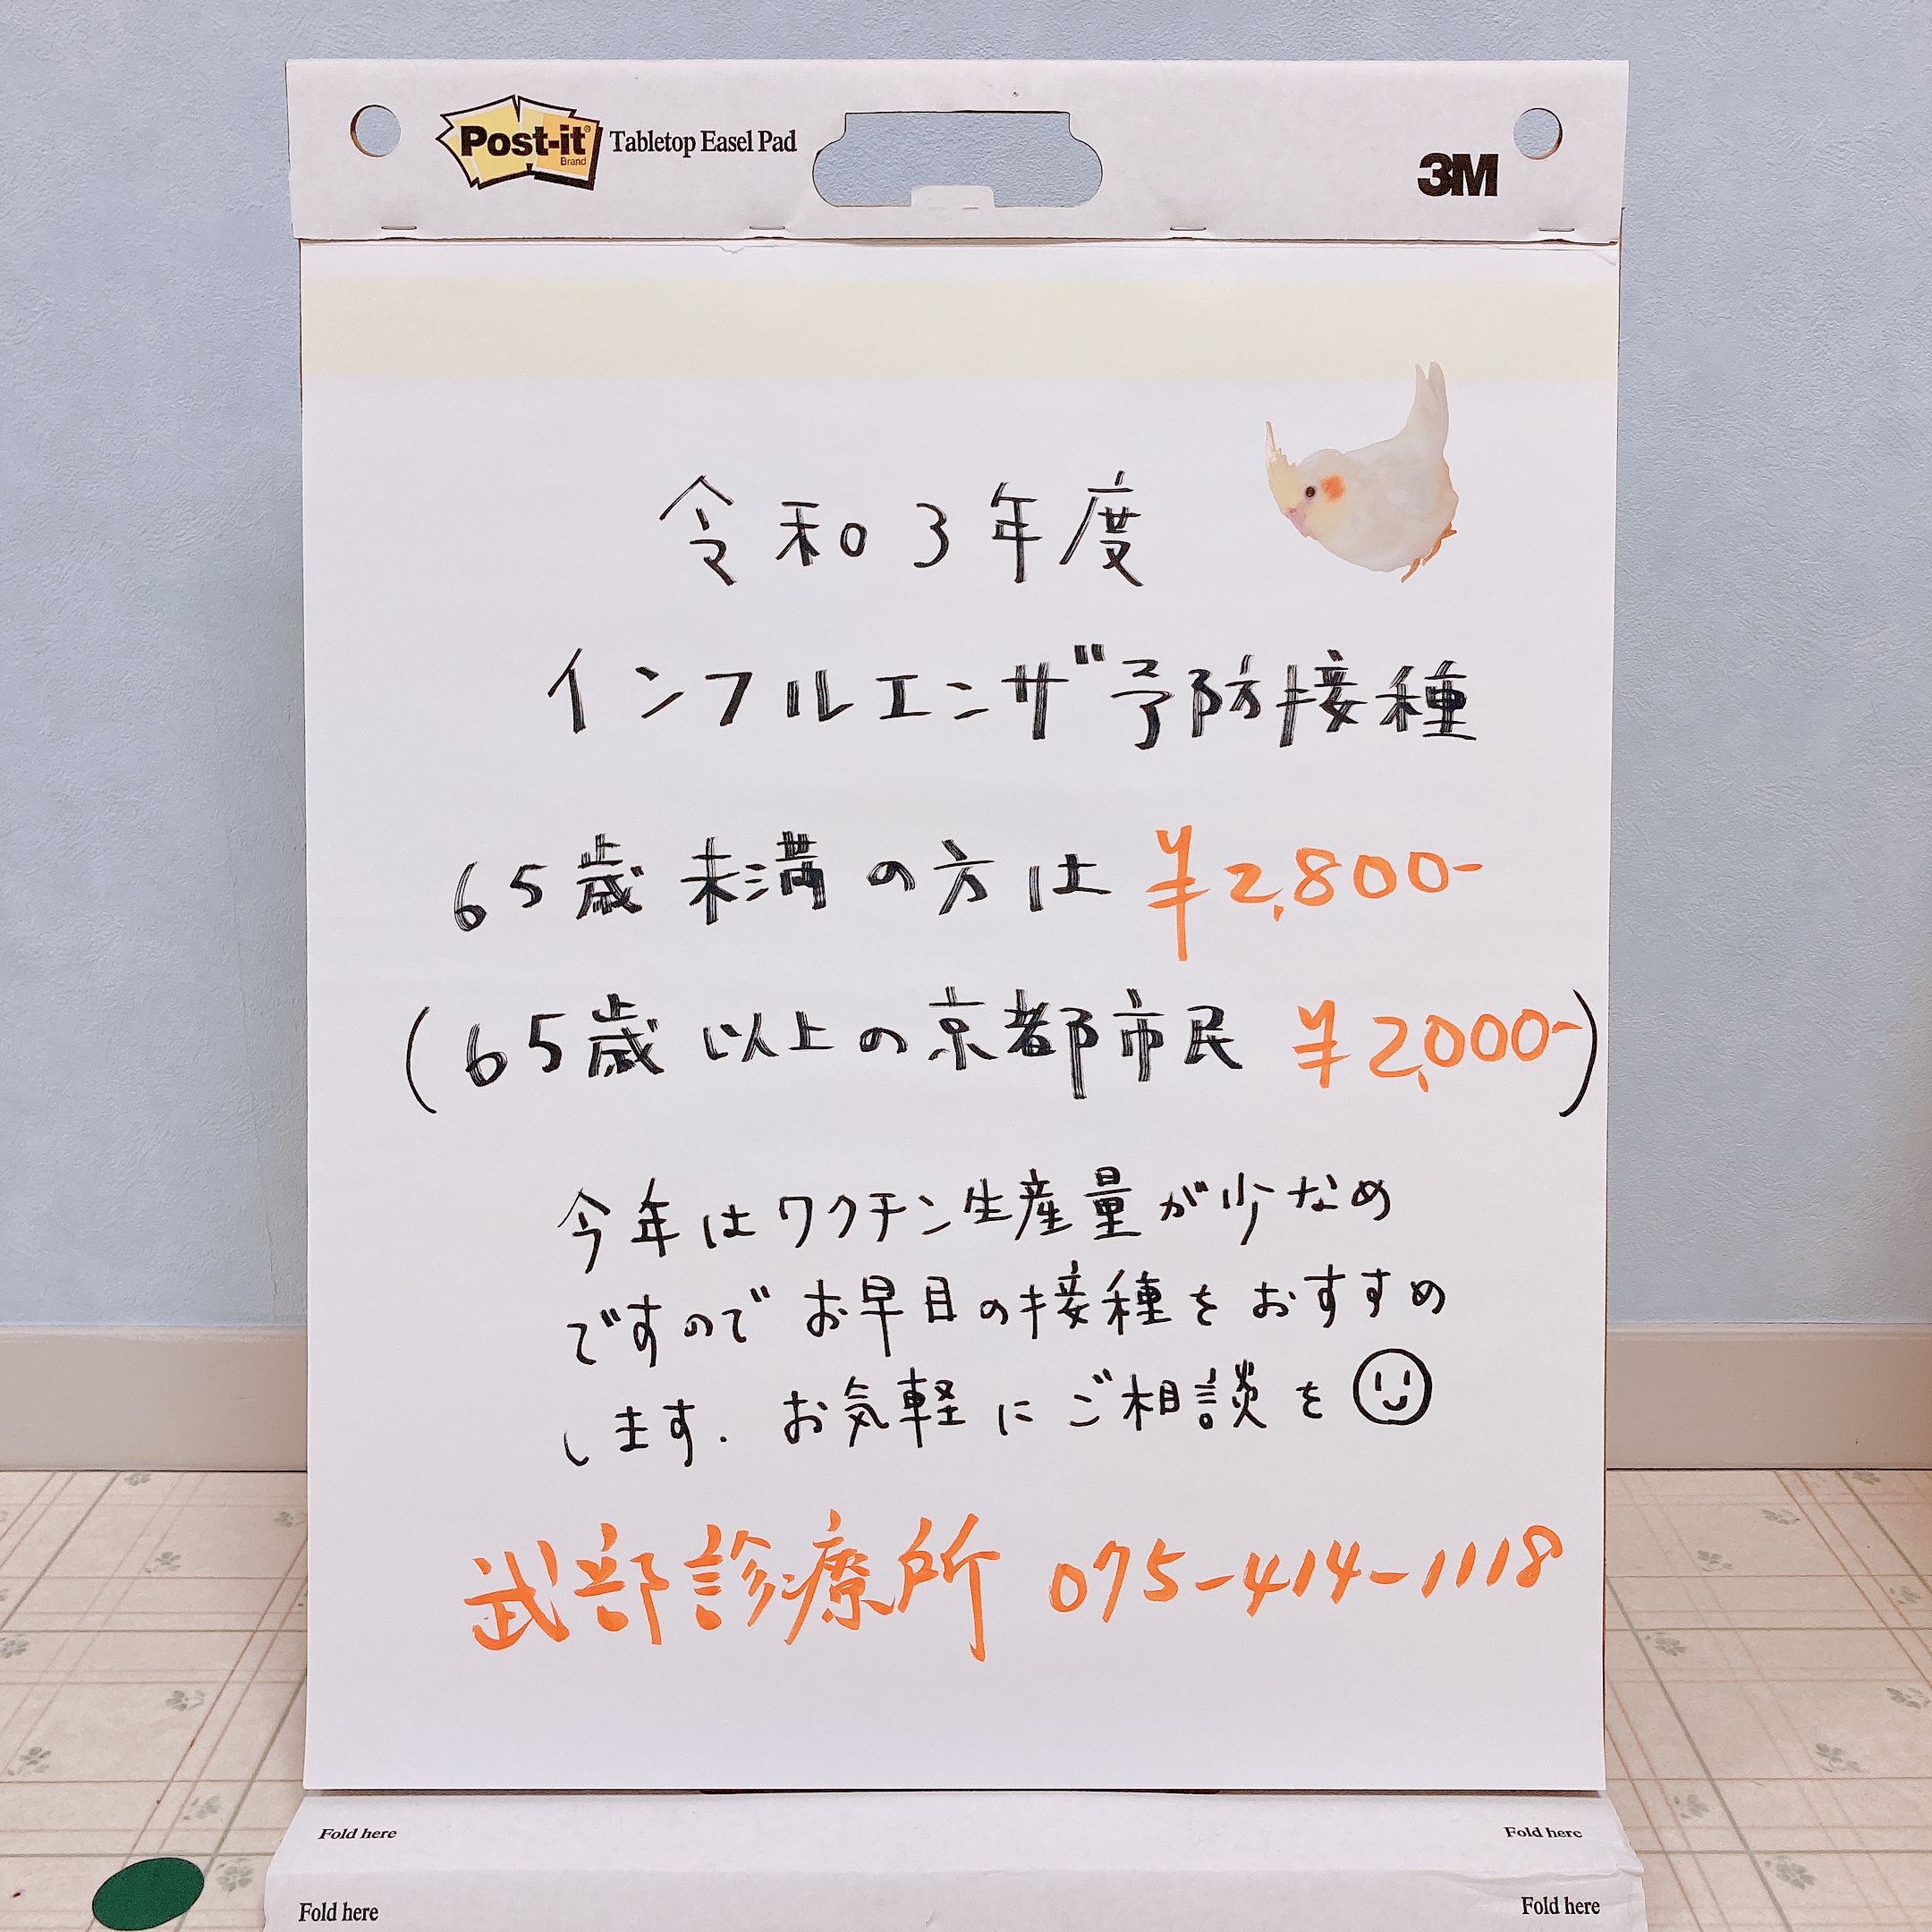 Post-it® Brand Tabletop Easel Pad 3M
令和3年度
インフルエンザ予防接種
65歳未満の方は ¥2,800-
(65歳以上の京都市民 ¥2,000-)
今年はワクチン生産量が少なめ
ですのでお早目の接種をおすすめ
します. お気軽にご相談を
武部診療所 075-414-1118
Fold here Fold here
Fold here Fold here